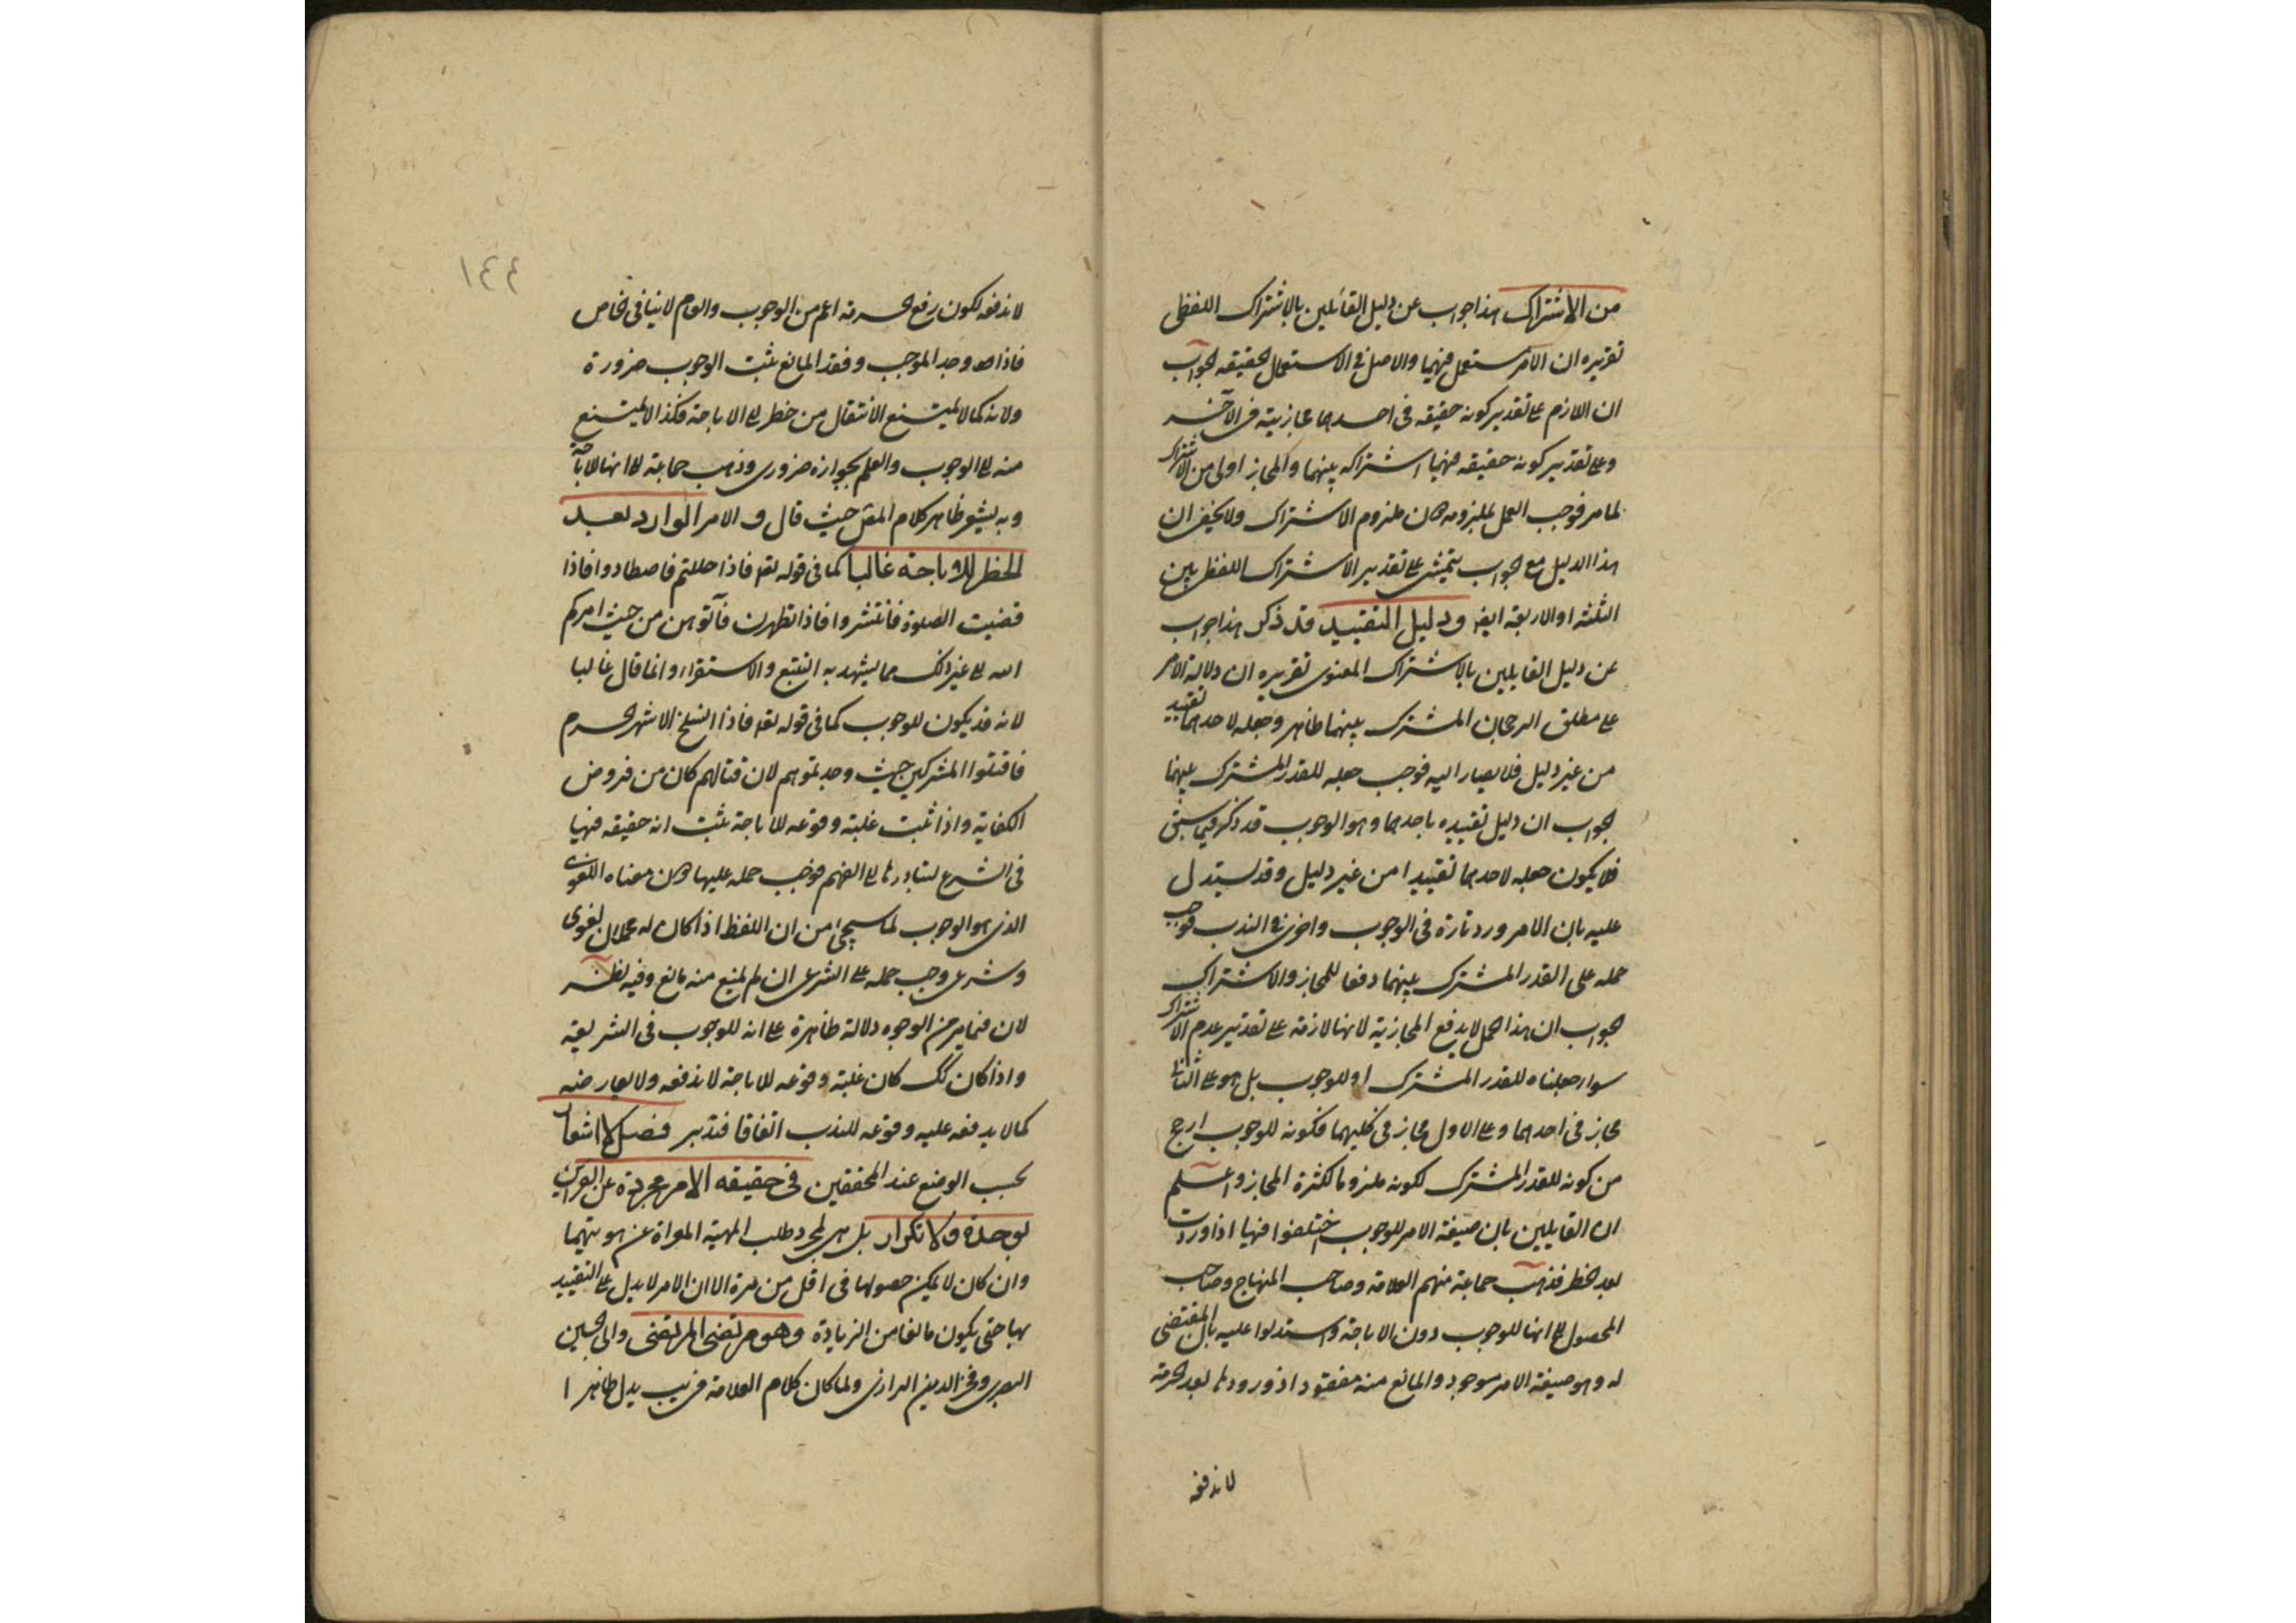 من الاشتراك هذا جواب عن دليل القائلين بالاشتراك اللفظي
تقريره ان الامر مستعمل فيهما والاصل في الاستعمال الحقيقه الجواب
ان اللازم على تقدير كونه حقيقه في احدهما مجازيته في الآخر
وعلى تقدير كونه حقيقه فيهما اشتراكه بينهما والمجاز اولى من الاشتراك
لما مر فوجب العمل بملزومه ملزوم الاشتراك ولا يخفى ان
هذا الدليل مع الجواب يتمشى على تقدير الاشتراك اللفظي بين
الثلثه او الاربعة ايضا ودليل التقييد قد ذكر هذا جواب
عن دليل القايلين بالاشتراك المعنوى تقريره ان دلالة الامر
على مطلق الرجحان المشترك بينهما ظاهر وجعله لاحدهما تقييد
من غير دليل فلا يصار اليه فوجب جعله للقدر المشترك بينهما
الجواب ان دليل تقييده باحدهما وهو الوجوب قد ذكر فيما سبق
فلا يكون جعله لاحدهما تقييدا من غير دليل وقد يستدل
عليه بان الامر ورد تارة في الوجوب واخرى في الندب فوجب
حمله على القدر المشترك بينهما دفعا للمجاز والاشتراك
الجواب ان هذا الحمل لا يدفع المجازية لانها لازمة على تقدير عدم الاشتراك
سواء جعلناه للقدر المشترك او للوجوب بل هو على الثانى
مجاز في احدهما وعلى الاول مجاز في كليهما فكونه للوجوب ارجح
من كونه للقدر المشترك لكونه ملزوما لكثرة المجاز واعلم
ان القايلين بان صيغة الامر للوجوب اختلفوا فيها اذا وردت
بعد الحظر فذهب جماعة منهم العلامة وصاحب المنهاج وصاحب
المحصول الى انها للوجوب دون الاباحة واستدلوا عليه بان المقتضى
له وهو صيغة الامر موجود والمانع منه مفقود اذ ورودها بعد الحرمة
لا يدفعه
١٤٤
لا يدفعه لكون رفع الحرمة اعم من الوجوب والعام لا ينافي الخاص
فاذا وجد الموجب وفقد المانع ثبت الوجوب ضرورة
ولانه كما لا يمتنع الانتقال من حظر الى الاباحة فكذا لا يمتنع
منه الى الوجوب والعلم بجوازه ضرورى وذهب جماعة الى انها للاباحة
وبه يشعر ظاهر كلام المص حيث قال و الامر الوارد بعد
الحظر للاباحة غالبا كما في قوله تعه فاذا حللتم فاصطادوا فاذا
قضيت الصلوة فانتشروا فاذا تطهرن فآتوهن من حيث امركم
الله الى غير ذلك مما يشهد به التتبع والاستقراء وانما قال غالبا
لانه قد يكون للوجوب كما في قوله تعه فاذا انسلخ الاشهر الحرم
فاقتلوا المشركين حيث وجدتموهم لان قتالهم كان من فروض
الكفاية واذا ثبت غلبة وقوعه للاباحة ثبت انه حقيقه فيها
في الشرع لتبادرها الى الفهم فوجب حمله عليها معناه اللغوى
الذى هو الوجوب لما سيجئ من ان اللفظ اذا كان له محملان لغوى
وشرعى وجب حمله على الشرعى ان لم يمنع منه مانع وفيه نظر
لان فيما مر من الوجوه دلالة ظاهرة على انه للوجوب في الشريعة
واذا كان كك كان غلبة وقوعه للاباحة لا يدفعه ولا يعارضه
كما لا يدفعه غلبة وقوعه للندب اتفاقا فتدبر فصل لا اشعار
بحسب الوضع عند المحققين في حقيقه الامر مجردة عن القراين
لوحدة ولا تكرار بل هى لمجرد طلب المهية المعراة عن هويتهما
وان كان لا يمكن حصولها في اقل من مرة الا ان الامر لا يدل على التقييد
بها حتى يكون مانعا من الزيادة وهو مرتضى المرتضى وابى الحسين
البصرى وفخر الدين الرازى ولما كان كلام العلامة في يب يدل ظاهرا